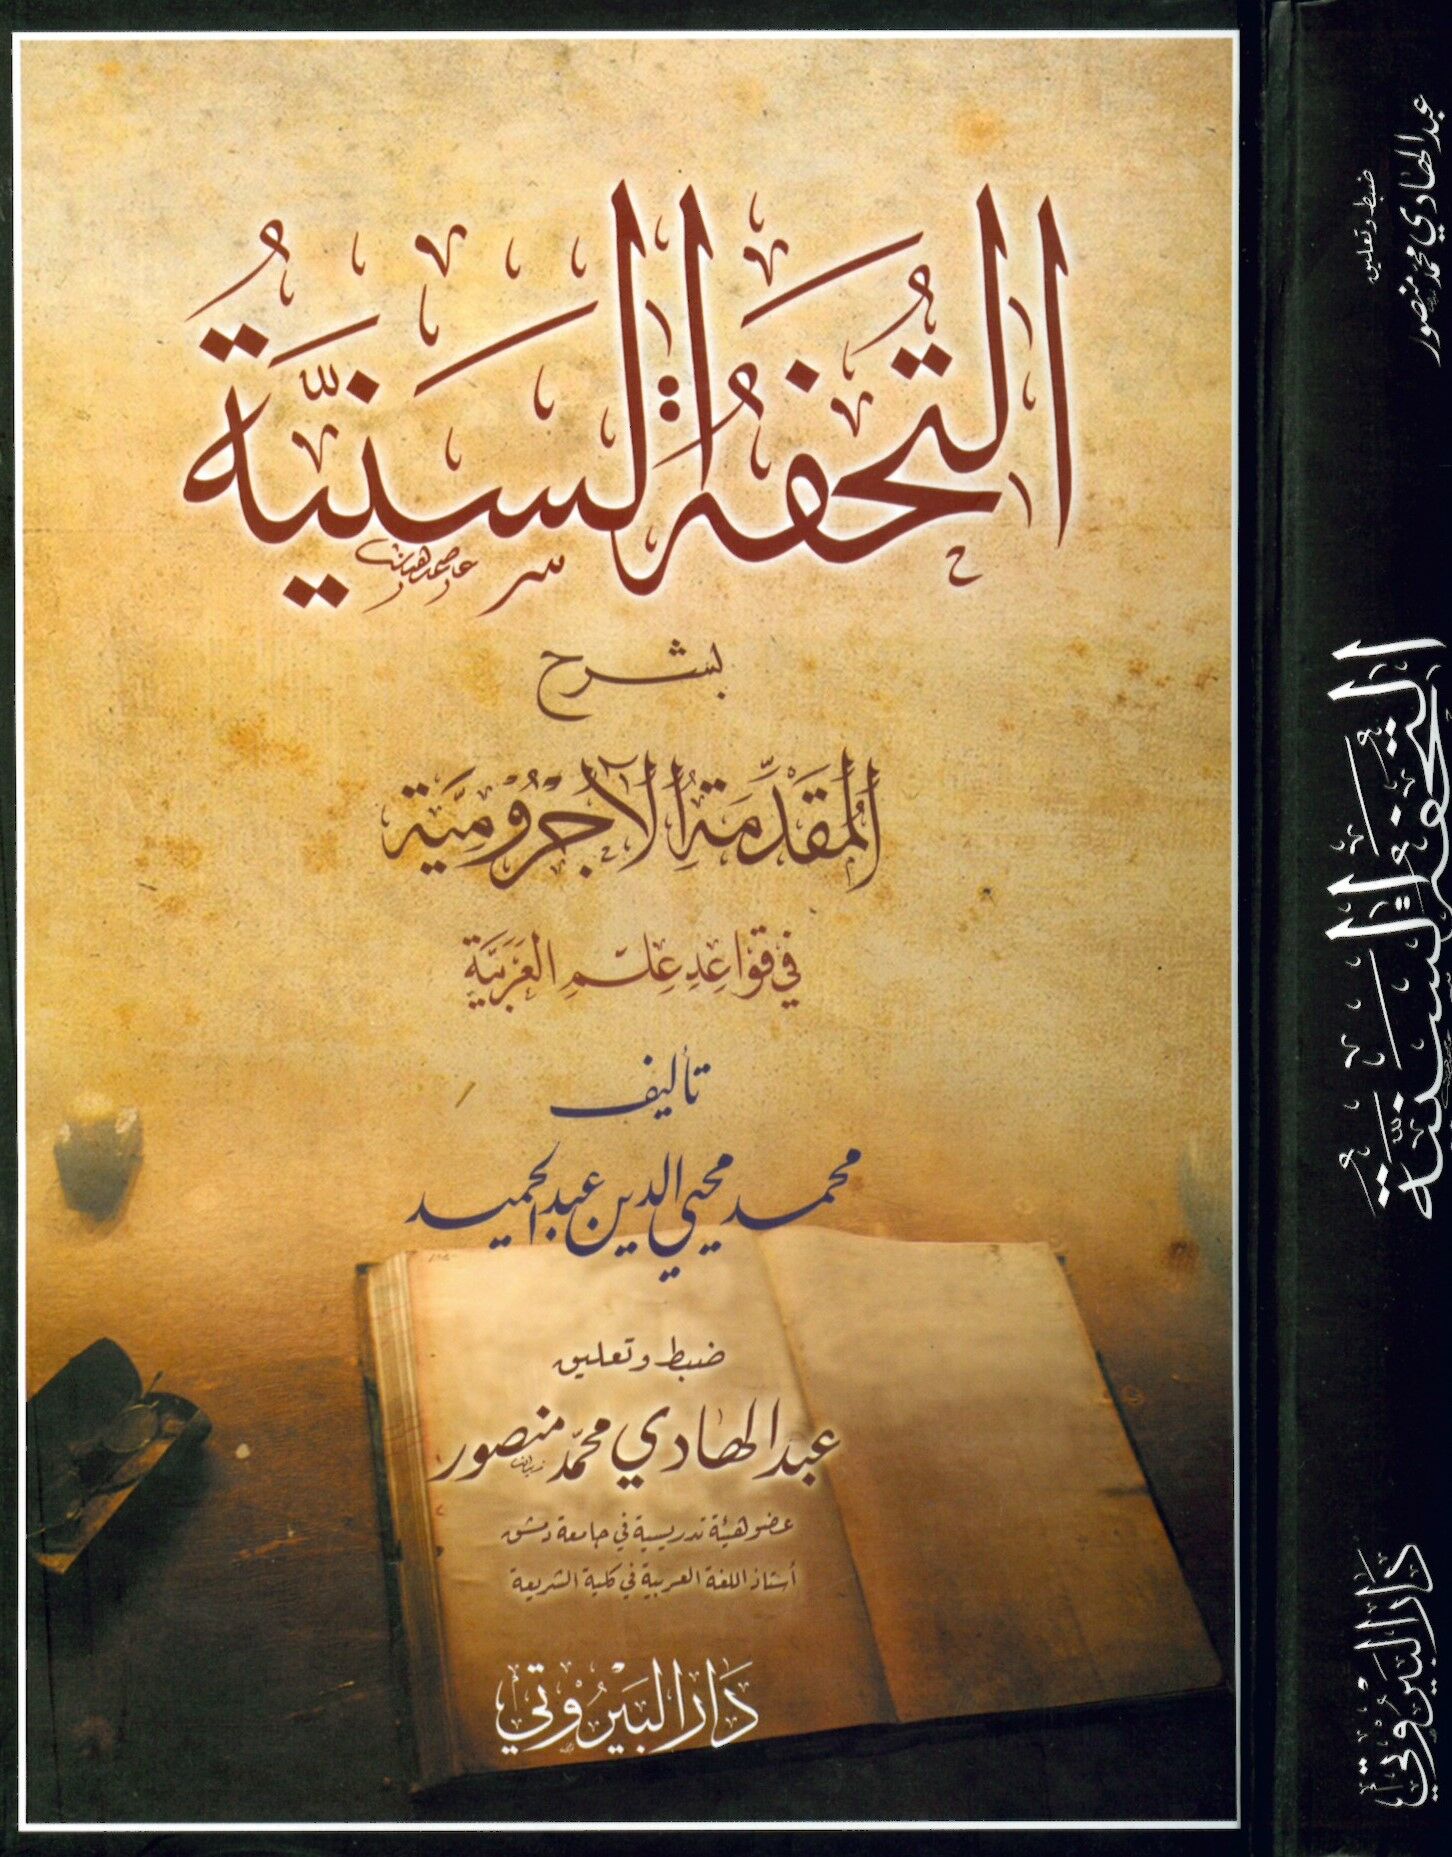 التُّحفَةُ السَّنِيَّةُ
بشرح
المُقَدِّمَةِ الآجُرُّومِيَّة
في قَوَاعِدِ عِلمِ العَرَبيَّةِ
تأليف
محمد محيي الدين عبد الحميد
ضبط وتعليق
عبد الهادي محمّد منصور
عضو هيئة تدريسية في جامعة دمشق
أستاذ اللغة العربية في كلية الشريعة
دَار البَيْرُوتي
ضبط وتعليق
عبد الهادي محمد منصور
التُّحفَةُ السَّنِيَّةُ
دَار البَيْرُوتي